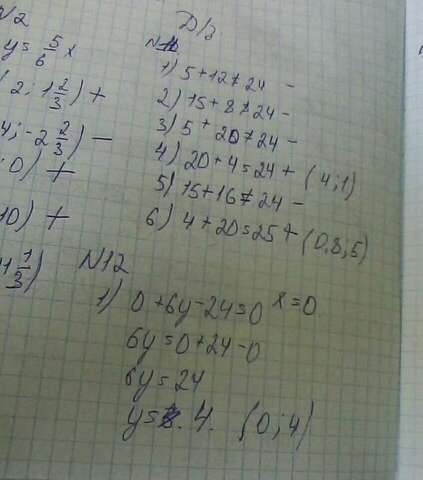 N2
y = 5/6 x
2; 1 2/3) +
4; -2 2/3) -
; 0) +
10) +
1 1/3)
Д/з
1) 5 + 12 ≠ 24 -
2) 15 + 8 ≠ 24 -
3) 5 + 20 ≠ 24 -
4) 20 + 4 = 24 + (4; 1)
5) 15 + 16 ≠ 24 -
6) 4 + 20 = 25 + (0,8; 5)
N12
1) 0 + 6y - 24 = 0 x = 0
6y = 0 + 24 - 0
6y = 24
y = 4. (0; 4)